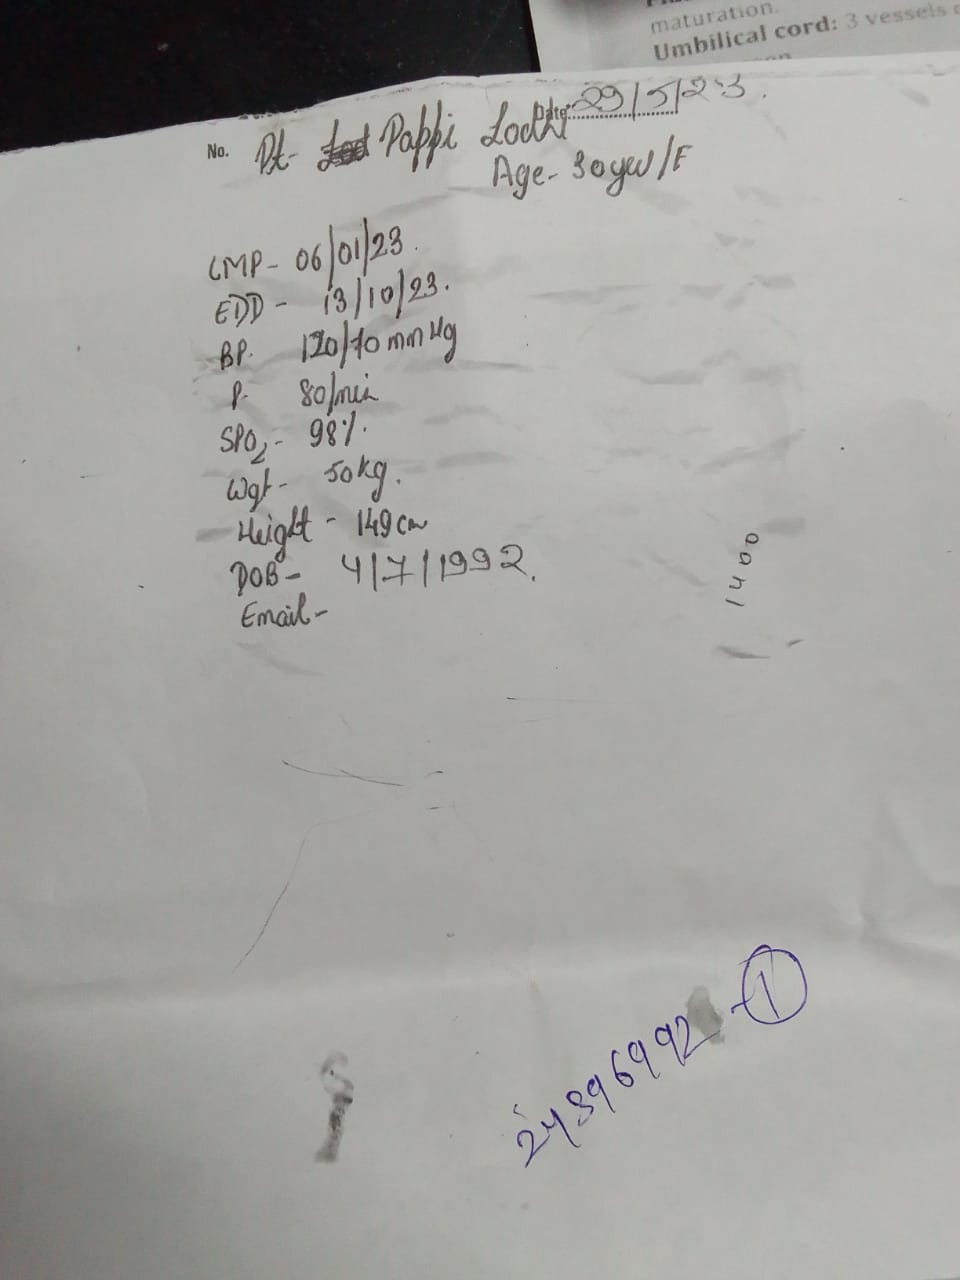 maturation.
Umbilical cord: 3 vessels
Date: 29/5/23.
No. Pt- Pappi Lodhi
Age- 30yrs/F
LMP- 06/01/23.
EDD - 13/10/23.
BP. 120/70 mmHg
P. 80/min
SPO2- 98%.
Wgt- 50kg.
Height - 149cm
DOB- 4/7/1992.
Email-
24396992 - 1